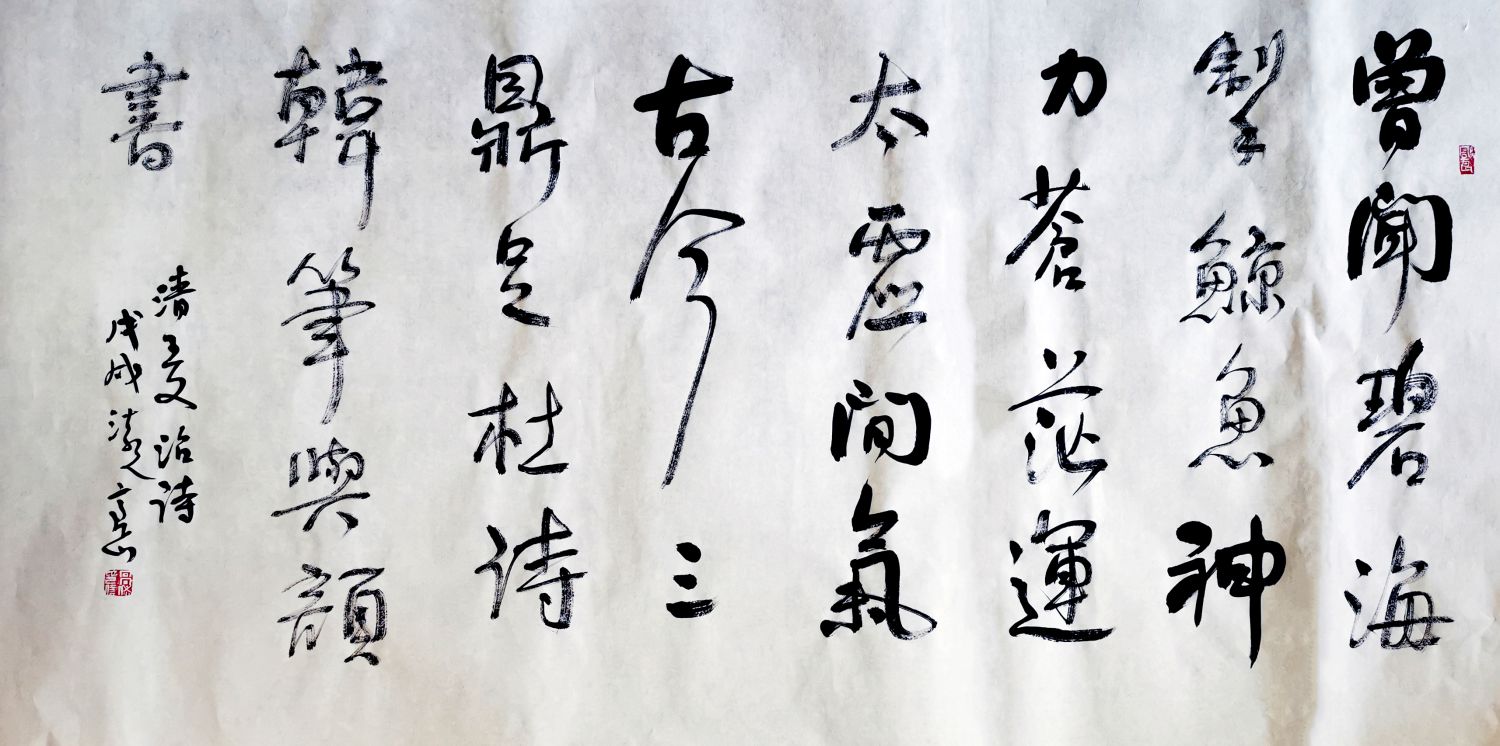 曾聞碧海
掣鯨魚神
力蒼茫運
太虛間氣
古今三
鼎足杜詩
韓筆與顏
書
清王文治詩
戊戌